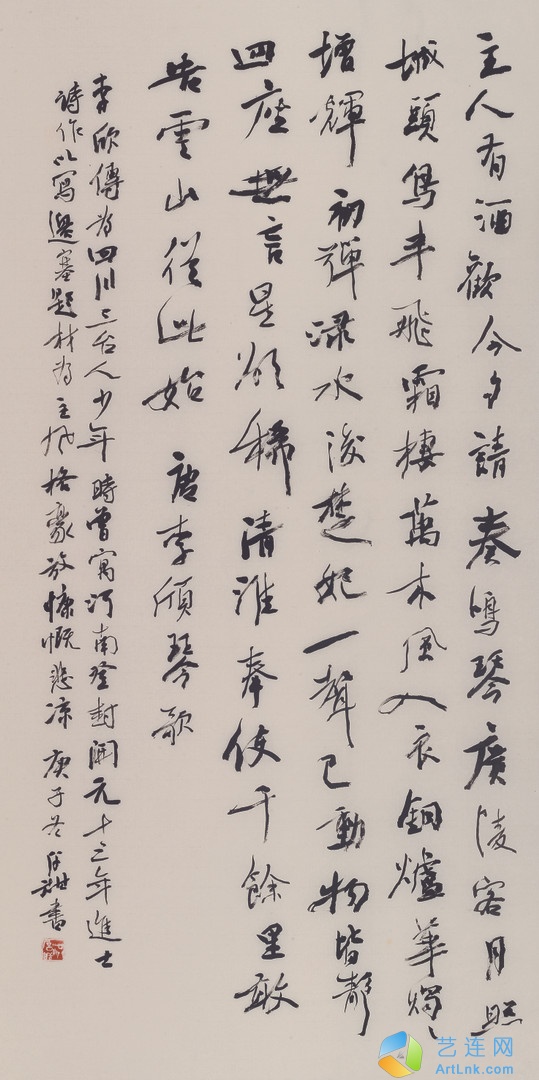 主人有酒歡今夕請奏鳴琴廣陵客月照
城頭烏半飛霜棲萬木風入衣銅爐華燭〻
增輝初彈淥水後楚妃一聲已動物皆靜
四座無言星欲稀清淮奉使千餘里敢
告雲山從此始 唐李頎琴歌
李欣傳為四川三台人少年時曾寓河南登封開元十三年進士
詩作以寫邊塞題材為主風格豪放慷慨悲涼 庚子冬 書
艺连网
ArtLnk.com